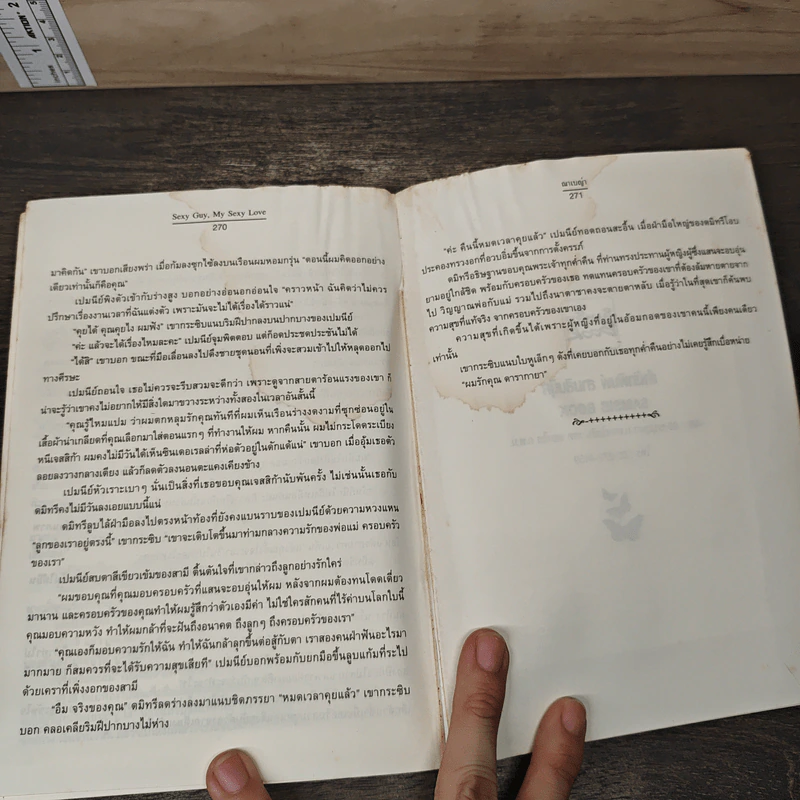 Sexy Guy, My Sexy Love
270
มาคิดกัน” เขาบอกเสียงพร่า เมื่อก้มลงซุกไซ้ลงบนเรือนผมหอมกรุ่น “ตอนนี้ผมคิดออกอย่าง
เดียวเท่านั้นก็คือคุณ”
เปมนีย์พิงตัวเข้ากับร่างสูง บอกอย่างอ่อนอกอ่อนใจ “คราวหน้า ฉันคิดว่าไม่ควร
ปรึกษาเรื่องงานเวลาที่ฉันแต่งตัว เพราะมันจะไม่ได้เรื่องได้ราวแน่”
“คุยได้ คุณคุยไง ผมฟัง” เขากระซิบแนบริมฝีปากลงบนปากบางของเปมนีย์
“ค่ะ แล้วจะได้เรื่องไหมละคะ” เปมนีย์จูบพิตตอบ แต่ก็อดประชดประชันไม่ได้
“ได้สิ” เขาบอก ขณะที่มือเลื่อนลงไปดึงชายชุดนอนที่เพิ่งจะสวมเข้าไปให้หลุดออกไป
ทางศีรษะ
เปมนีย์ถอนใจ เธอไม่ควรจะรีบสวมจะดีกว่า เพราะดูจากสายตาร้อนแรงของเขา ก็
น่าจะรู้ว่าเขาคงไม่อยากให้มีสิ่งใดมาขวางระหว่างทั้งสองในเวลาอันสั้นนี้
“คุณรู้ไหมแปม ว่าผมตกหลุมรักคุณทันทีที่ผมเห็นเรือนร่างงดงามที่ซุกซ่อนอยู่ใน
เสื้อผ้าน่าเกลียดที่คุณเลือกมาใส่ตอนแรกๆ ที่ทำงานให้ผม หากคืนนั้น ผมไม่กระโดดระเบียง
หนีเจสสิก้า ผมคงไม่มีวันได้เห็นซินเดอเรลล่าที่ห่อตัวอยู่ในดักแด้แน่” เขาบอก เมื่ออุ้มเธอตัว
ลอยลงวางกลางเตียง แล้วก็ลดตัวลงนอนตะแคงเคียงข้าง
เปมนีย์หัวเราะเบาๆ นั่นเป็นสิ่งที่เธอขอบคุณเจสสิก้านับพันครั้ง ไม่เช่นนั้นเธอกับ
ดมิทรีคงไม่มีวันลงเอยแบบนี้แน่
ดมิทรีลูบไล้ฝ่ามือลงไปตรงหน้าท้องที่ยังคงแบนราบของเปมนีย์ด้วยความหวงแหน
“ลูกของเราอยู่ตรงนี้” เขากระซิบ “เขาจะเติบโตขึ้นมาท่ามกลางความรักของพ่อแม่ ครอบครัว
ของเรา”
เปมนีย์สบตาสีเขียวเข้มของสามี ตื้นตันใจที่เขากล่าวถึงลูกอย่างรักใคร่
“ผมขอบคุณที่คุณมอบครอบครัวที่แสนจะอบอุ่นให้ผม หลังจากผมต้องทนโดดเดี่ยว
มานาน และครอบครัวของคุณทำให้ผมรู้สึกว่าตัวเองมีค่า ไม่ใช่ใครสักคนที่ไร้ค่าบนโลกใบนี้
คุณมอบความหวัง ทำให้ผมกล้าที่จะฝันถึงอนาคต ถึงลูกๆ ถึงครอบครัวของเรา”
“คุณเองก็มอบความรักให้ฉัน ทำให้ฉันกล้าลุกขึ้นต่อสู้กับตา เราสองคนฝ่าฟันอะไรมา
มากมาย ก็สมควรที่จะได้รับความสุขเสียที” เปมนีย์บอกพร้อมกับยกมือขึ้นลูบแก้มที่ระไป
ด้วยเคราที่เพิ่งงอกของสามี
“อืม จริงของคุณ” ดมิทรีลดร่างลงมาแนบชิดภรรยา “หมดเวลาคุยแล้ว” เขากระซิบ
บอก คลอเคลียริมฝีปากบางไม่ห่าง
ฌาเบญ่า
271
“ค่ะ คืนนี้หมดเวลาคุยแล้ว” เปมนีย์ทอดถอนสะอื้น เมื่อฝ่ามือใหญ่ของดมิทรีโลบ
ประคองทรวงอกที่อวบอิ่มขึ้นจากการตั้งครรภ์
ดมิทรีอธิษฐานขอบคุณพระเจ้าทุกค่ำคืน ที่ท่านทรงประทานผู้หญิงผู้ซึ่งแสนจะอบอุ่น
ยามอยู่ใกล้ชิด พร้อมกับครอบครัวของเธอ ทดแทนครอบครัวของเขาที่ต้องล้มหายตายจาก
ไป วิญญาณพ่อกับแม่ รวมไปถึงนาตาชาคงจะตายตาหลับ เมื่อรู้ว่าในที่สุดเขาก็ค้นพบ
ความสุขที่แท้จริง จากครอบครัวของเขาเอง
ความสุขที่เกิดขึ้นได้เพราะผู้หญิงที่อยู่ในอ้อมกอดของเขาคนนี้เพียงคนเดียว
เท่านั้น
เขากระซิบแนบใบหูเล็กๆ ดังที่เคยบอกกับเธอทุกค่ำคืนอย่างไม่เคยรู้สึกเบื่อหน่าย
“ผมรักคุณ ดารากายา”